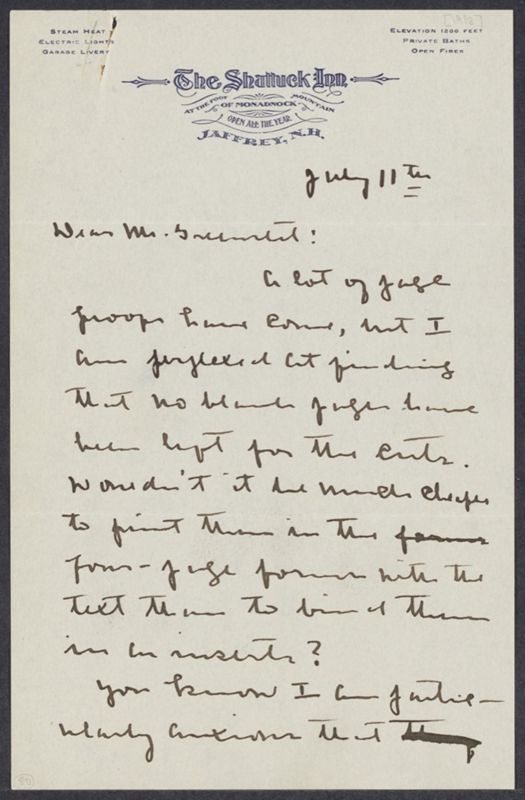 [1918]
STEAM HEAT
ELECTRIC LIGHTS
GARAGE LIVERY
ELEVATION 1200 FEET
PRIVATE BATHS
OPEN FIRES
The Shattuck Inn
AT THE FOOT OF MONADNOCK MOUNTAIN
OPEN ALL THE YEAR
JAFFREY, N.H.
July 11th
Dear Mr. Greenslet:
A lot of page
proofs have come, but I
am perplexed at finding
that no blank pages have
been left for the cuts.
Wouldn't it be much cheaper
to print them in the
four-page forms with the
text than to bind them
in as inserts?
You know I am partic-
ularly anxious that